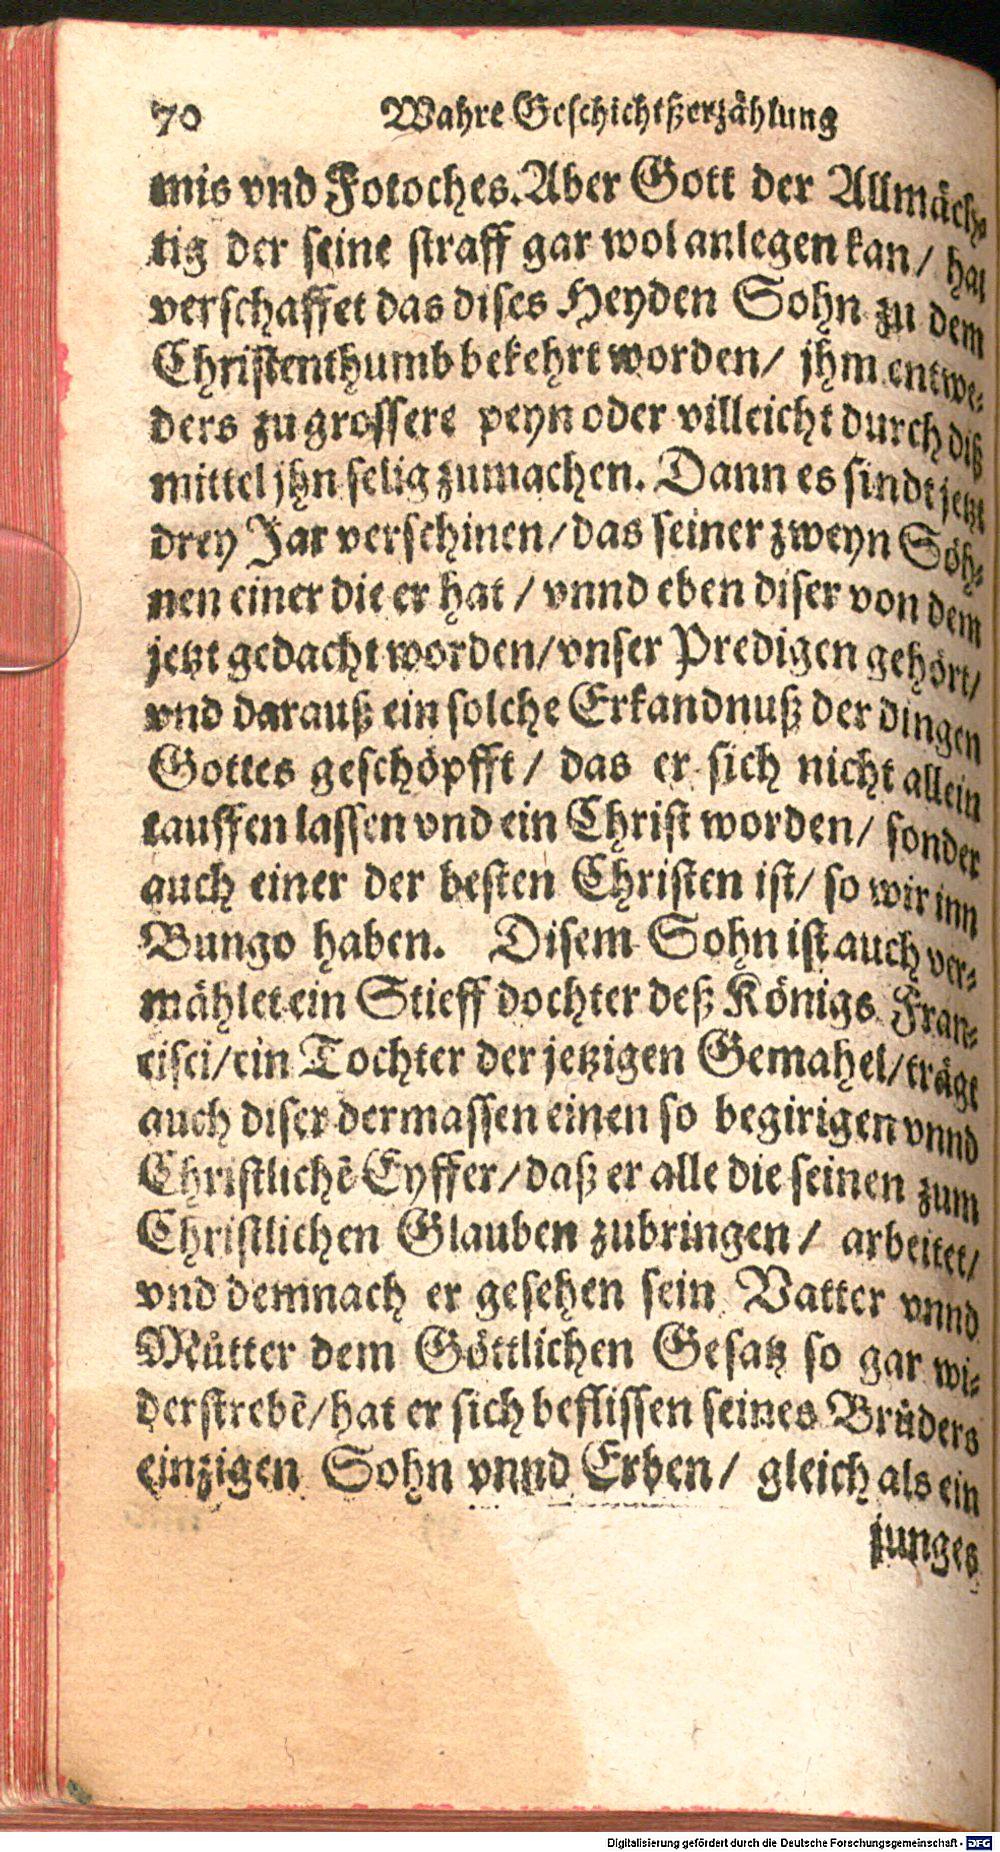 70 Wahre Geschichtßerzählung
mis vnd Fotoches. Aber Gott der Allmäch⸗
tig der seine straff gar wol anlegen kan/ hat
verschaffet das dises Heyden Sohn zu dem
Christenthumb bekehrt worden/ jhm entwe⸗
ders zu grossere peyn oder villeicht durch diß
mittel jhn selig zumachen. Dann es sindt jetzt
drey Jar verschinen/ das seiner zweyn Söh⸗
nen einer die er hat / vnnd eben diser von dem
jetzt gedacht worden/ vnser Predigen gehört/
vnd darauß ein solche Erkandnuß der dingen
Gottes geschöpfft/ das er sich nicht allein
tauffen lassen vnd ein Christ worden/ sonder
auch einer der besten Christen ist/ so wir inn
Bungo haben. Disem Sohn ist auch ver⸗
mählet ein Stieff dochter deß Königs Fran⸗
cisci/ ein Tochter der jetzigen Gemahel/ trägt
auch diser dermassen einen so begirigen vnnd
Christlichē Eyffer/ daß er alle die seinen zum
Christlichen Glauben zubringen/ arbeitet/
vnd demnach er gesehen sein Vatter vnnd
Můtter dem Göttlichen Gesatz so gar wi⸗
derstrebē/ hat er sich beflissen seines Brůders
einzigen Sohn vnnd Erben/ gleich als ein
junges
Digitalisierung gefördert durch die Deutsche Forschungsgemeinschaft - DFG